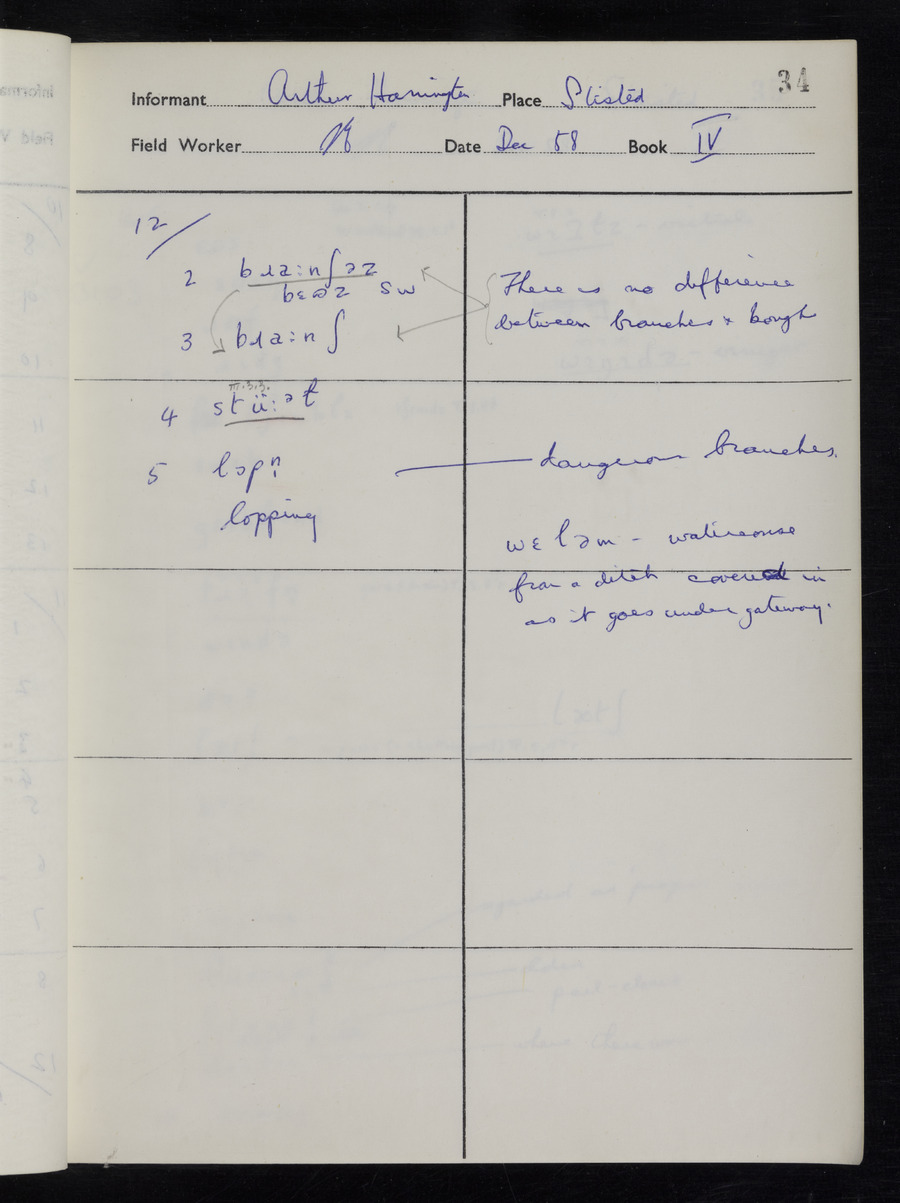 34
Informant Arthur Harrington Place Stisted
Field Worker Date Dec 58 Book IV
12/
2 bɹaːnʃəz
bɛωz SW
There is no difference
between branches & boughs
3 bɹaːnʃ
III.3.3.
4 stüːət
5 lɔpn̩ dangerous branches.
lopping
wɛləm - watercourse
from a ditch covered in
as it goes under gateway.